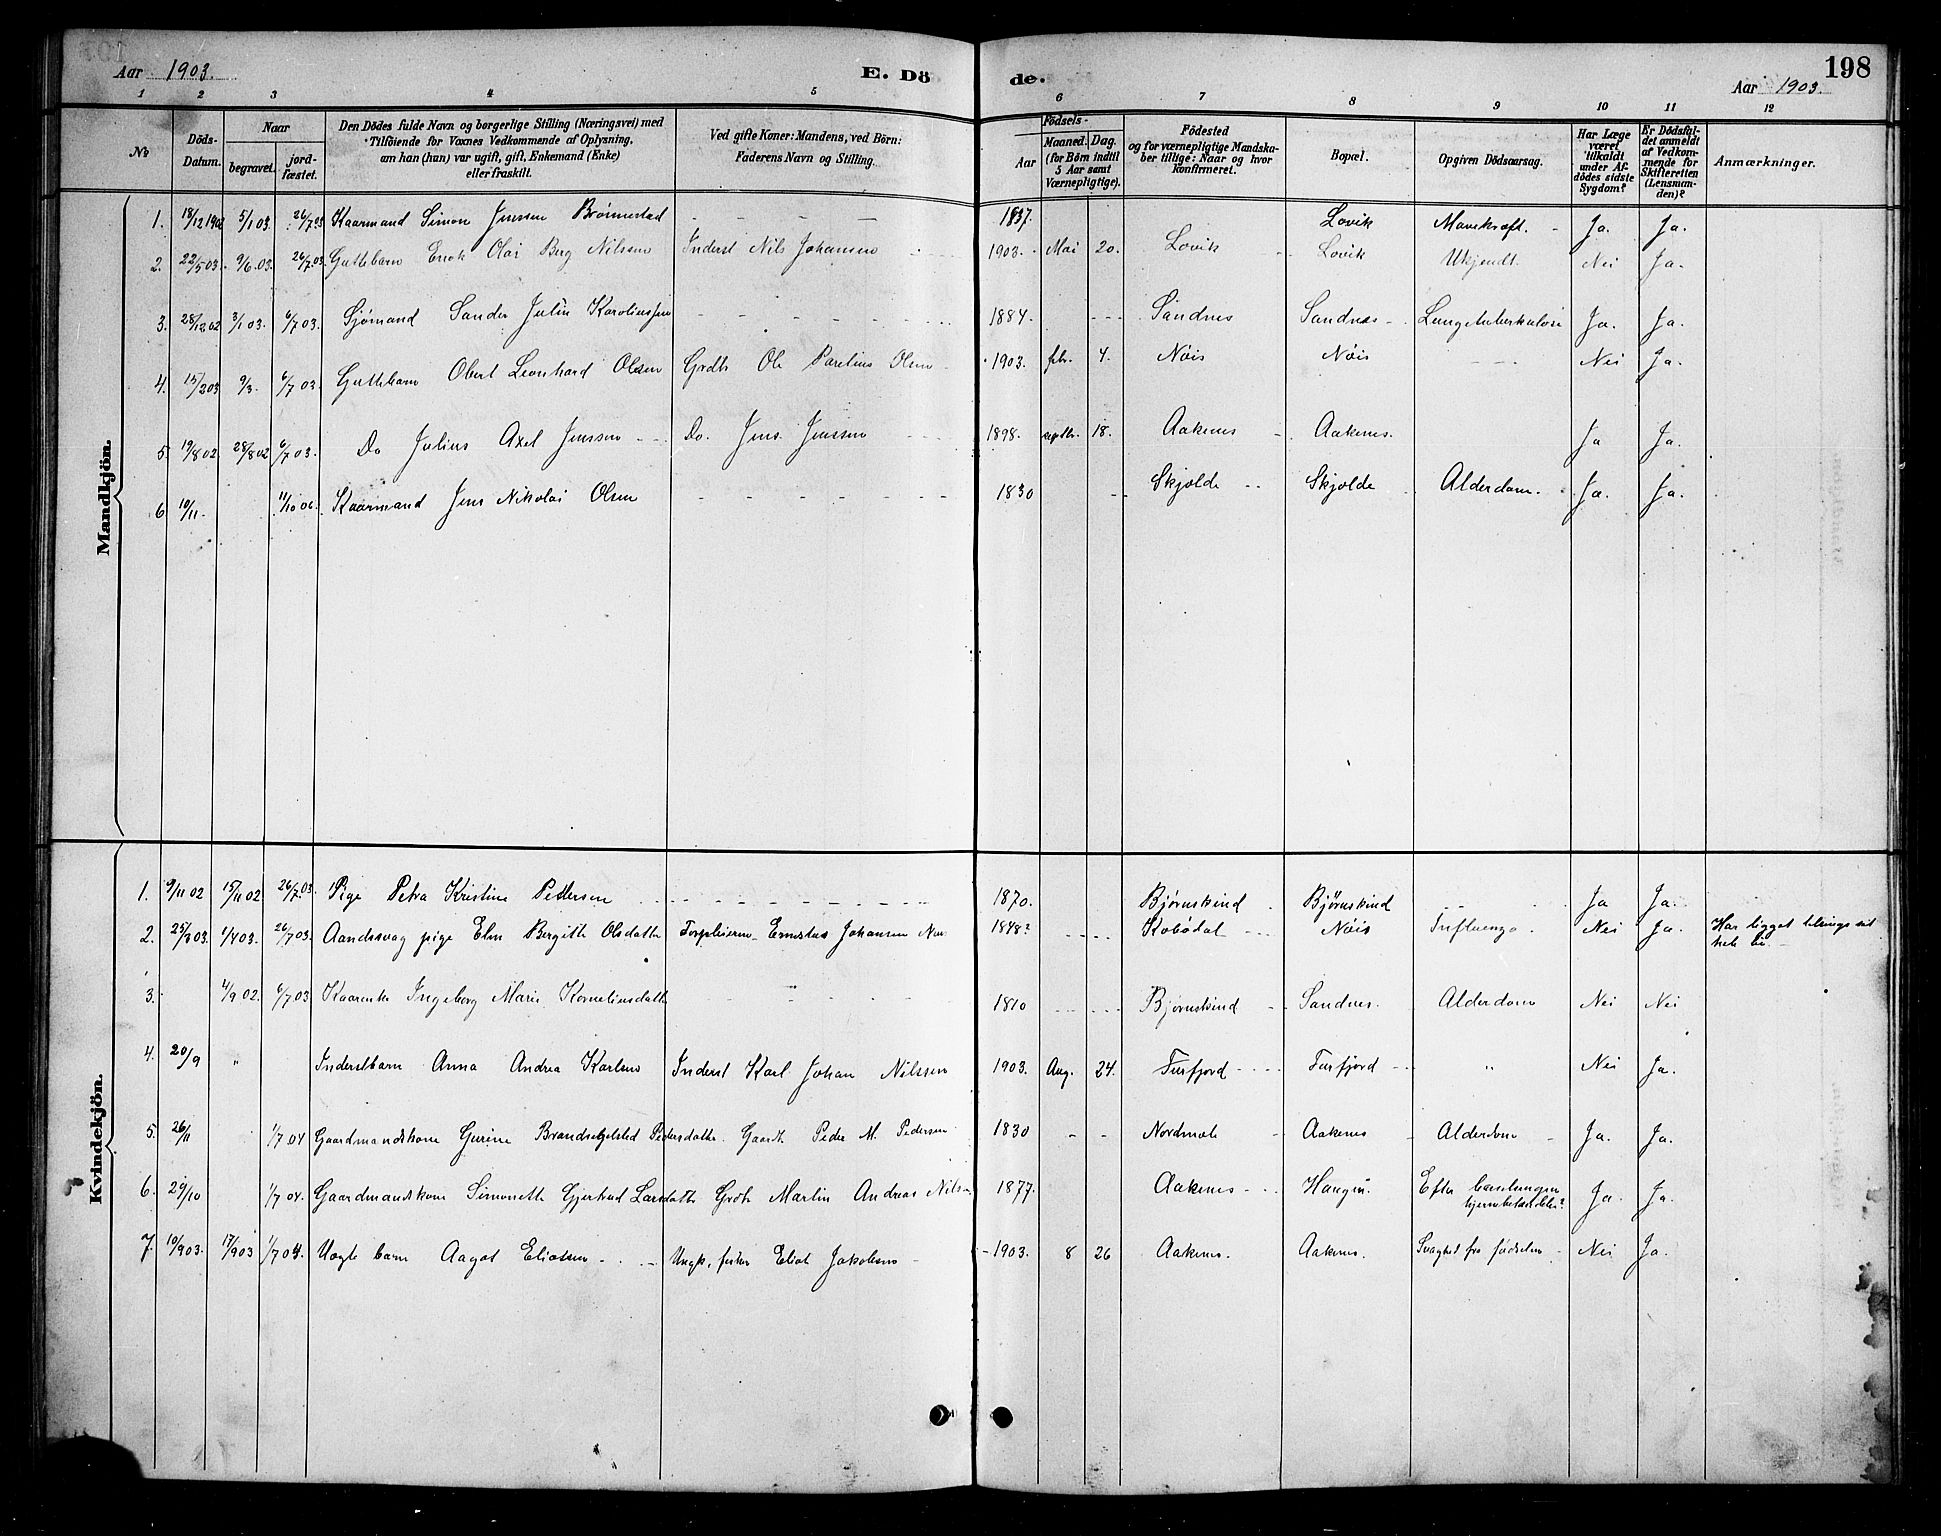 Aar 1903.
E. Dö de.
Aar 1903.
198
1 2 3 4 5 6 7 8 9 10 11 12
No
Döds-Datum.
Naar
begravet.
jordfæstet.
Den Dödes fulde Navn og borgerlige Stilling (Næringsvei) med Tilföiende for Voxnes Vedkommende af Oplysning, om han (hun) var ugift, gift, Enkemand (Enke) eller fraskilt.
Ved gifte Koner: Mandens, ved Börn: Faderens Navn og Stilling.
Födsels-
Aar
Maaned. Dag.
(for Börn indtil 5 Aar samt Værnepligtige).
Födested og for værnepligtige Mandskaber tillige: Naar og hvor konfirmeret.
Bopæl.
Opgiven Dödsaarsag.
Har Læge været tilkaldt under Afdödes sidste Sygdom?
Er Dödsfaldet anmeldt af Vedkommende for Skifteretten (Lensmanden)?
Anmærkninger.
Mandkjön.
1. 18/12 1902 5/1 03 26/7 03 Kaarmand Simon Jenssen Brönnestad 1837. Lovik Marekraft. Ja. Ja.
2. 22/5 03. 9/6 03. 26/7 03. Guttebarn Enok Olai Berg Nilssen Inderst Nils Johansen 1903. Mai 20. Lovik Lovik Ukjendt. Nei Ja.
3. 28/12 02 3/1 03. 6/7 03. Sjømand Sander Julin Karoliussen 1884. Sandnes Sandnes Lungetuberkulose Ja. Ja.
4. 15/2 03 9/3. 6/7 03. Guttebarn Obert Leonhard Olsen Grdb. Ole Parelius Olsen 1903. febr. 4. Nöis Nöis Nei Ja.
5. 19/8 02. 28/8 02 6/7 03. Do Julius Axel Jenssen Do. Jens Jenssen 1898. septbr. 18. Aakenes Aakenes. Ja Ja.
6. 10/11. 11/10 06. Kaarmand Jens Nikolai Olsen 1830 Skjolde Skjolde Alderdom. Ja. Ja.
Kvindekjön.
1. 9/11 02 15/11 02 26/7 03. Pige Petra Kristine Pedersen 1870. Bjørnskind Bjørnskind Ja Ja.
2. 25/3 03. 1/4 03. 26/7 03. Aandssvag pige Elen Bergitte Olsdatter Forpleierne Ernstus Johansen Nöis 1848? Kobödal Nöis Influenza. Nei Ja. Har ligget tilsengs sit hele liv.
3. 4/9 02. 6/7 03 Kaarenke Ingeborg Marie Korneliusdatter 1810 Bjørnskind Sandnes. Alderdom Nei Nei
4. 20/9 " Inderstbarn Anna Andrea Karlsen Inderst Karl Johan Nilssen 1903. Aug. 24. Fusfjord Fusfjord " Nei Ja.
5. 26/11 1/7 04 Gaardmandskone Gurine Brandselgsted Pedersdatter. Gaardb. Peder M. Pedersen 1830 Nordmele Aakenes Alderdom Ja. Ja.
6. 29/10 1/7 04. Gaardmandskone Simonette Gjertrud Larsdatter Grdb Martin Andreas Nilsen 1877. Aakenes Haugen. Efter barselsengen hjernebetændelse? Ja. Ja.
7. 10/9 03. 17/9 03 1/7 04. Uægte barn Aagot Eliassen Ungk. fisker Elias Jakobsen 1903. 8 26 Aakenes. Aakenes. Svaghed fra fødselen Nei Ja.